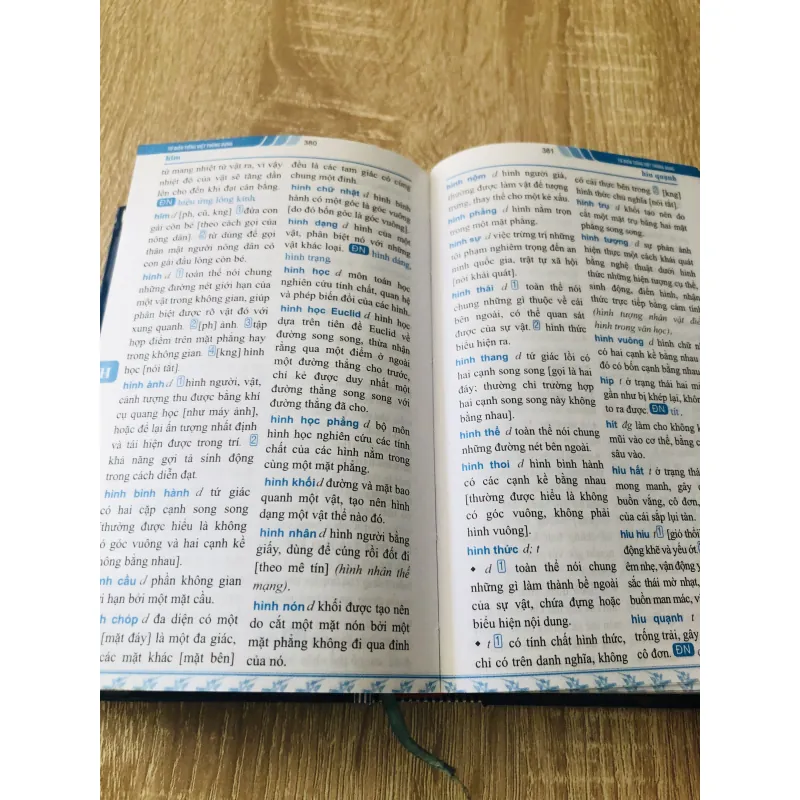 TỪ ĐIỂN TIẾNG VIỆT THÔNG DỤNG
380
hĩm
từ mang nhiệt từ vật ra, vì vậy
nhiệt độ của vật sẽ tăng dần
lên cho đến khi đạt cân bằng.
ĐN hiệu ứng lồng kính
hĩm d [ph, cũ, kng] 1 đứa con
gái còn bé [theo cách gọi của
nông dân] 2 từ dùng để gọi
thân mật người nông dân có
con gái đầu lòng còn bé.
hình d 1 toàn thể nói chung
những đường nét giới hạn của
một vật trong không gian, giúp
phân biệt được rõ vật đó với
xung quanh. 2 [ph] ảnh. 3 tập
hợp điểm trên mặt phẳng hay
trong không gian. 4 [kng] hình
học [nói tắt].
H
hình ảnh d 1 hình người, vật,
cảnh tượng thu được bằng khí
cụ quang học [như máy ảnh],
hoặc để lại ấn tượng nhất định
và tái hiện được trong trí. 2
khả năng gợi tả sinh động
trong cách diễn đạt.
hình bình hành d tứ giác
có hai cặp cạnh song song
[thường được hiểu là không
có góc vuông và hai cạnh kề
không bằng nhau].
nh cầu d phần không gian
giới hạn bởi một mặt cầu.
h chóp d đa diện có một
[mặt đáy] là một đa giác,
các mặt khác [mặt bên]
đều là các tam giác có cùng
chung một đỉnh.
hình chữ nhật d hình bình
hành có một góc là góc vuông
[do đó bốn góc là góc vuông].
hình dạng d hình của một
vật, phân biệt nó với những
vật khác loại. ĐN hình dáng,
hình trạng.
hình học d môn toán học
nghiên cứu tính chất, quan hệ
và phép biến đổi của các hình.
hình học Euclid d hình học
dựa trên tiên đề Euclid về
đường song song, thừa nhận
rằng qua một điểm ở ngoài
một đường thẳng cho trước,
chỉ kẻ được duy nhất một
đường thẳng song song với
đường thẳng đã cho.
hình học phẳng d bộ môn
hình học nghiên cứu các tính
chất của các hình nằm trong
cùng một mặt phẳng.
hình khối d đường và mặt bao
quanh một vật, tạo nên hình
dạng một vật thể nào đó.
hình nhân d hình người bằng
giấy, dùng để cúng rồi đốt đi
[theo mê tín] (hình nhân thế
mạng).
hình nón d khối được tạo nên
do cắt một mặt nón bởi một
mặt phẳng không đi qua đỉnh
của nó.
381
TỪ ĐIỂN TIẾNG VIỆT THÔNG DỤNG
hiu quạnh
hình nộm d hình người giả,
thường được làm vật để tượng
trưng, thay thế cho một kẻ xấu.
hình phẳng d hình nằm trọn
trong một mặt phẳng.
hình sự d việc trừng trị những
tội phạm nghiêm trọng đến an
ninh quốc gia, trật tự xã hội
[nói khái quát].
hình thái d 1 toàn thể nói
chung những gì thuộc về cái
bên ngoài, có thể quan sát
được của sự vật. 2 hình thức
biểu hiện ra.
hình thang d tứ giác lồi có
hai cạnh song song [gọi là hai
đáy; thường chỉ trường hợp
hai cạnh song song này không
bằng nhau].
hình thể d toàn thể nói chung
những đường nét bên ngoài.
hình thoi d hình bình hành
có các cạnh kề bằng nhau
[thường được hiểu là không
có góc vuông, không phải
hình vuông].
hình thức d; t
• d 1 toàn thể nói chung
những gì làm thành bề ngoài
của sự vật, chứa đựng hoặc
biểu hiện nội dung.
• t 1 có tính chất hình thức,
chỉ có trên danh nghĩa, không
có cái thực bên trong 2 [kng]
hình thức chủ nghĩa [nói tắt].
hình trụ d khối tạo nên do
cắt một mặt trụ bằng hai mặt
phẳng song song.
hình tượng d sự phản ánh
hiện thực một cách khái quát
bằng nghệ thuật dưới hình
thức những hiện tượng cụ thể,
sinh động, điển hình, nhận
thức trực tiếp bằng cảm tính
(hình tượng nhân vật điển
hình trong văn học).
hình vuông d hình chữ nh
có hai cạnh kề bằng nhau
đó có bốn cạnh bằng nhau
híp t ở trạng thái hai mí
gần như bị khép lại, khôn
to ra được. ĐN tít.
hít đg làm cho không k
mũi vào cơ thể, bằng c
sâu vào.
hiu hắt t ở trạng thá
mong manh, gây c
buồn vắng, cô đơn,
của cái sắp lụi tàn.
hiu hiu t 1 [gió thổi
động khẽ và yếu ớt.
êm nhẹ, vận động y
sắc thái mờ nhạt,
buồn man mác, v
hiu quạnh t
trống trải, gây
cô đơn. ĐN